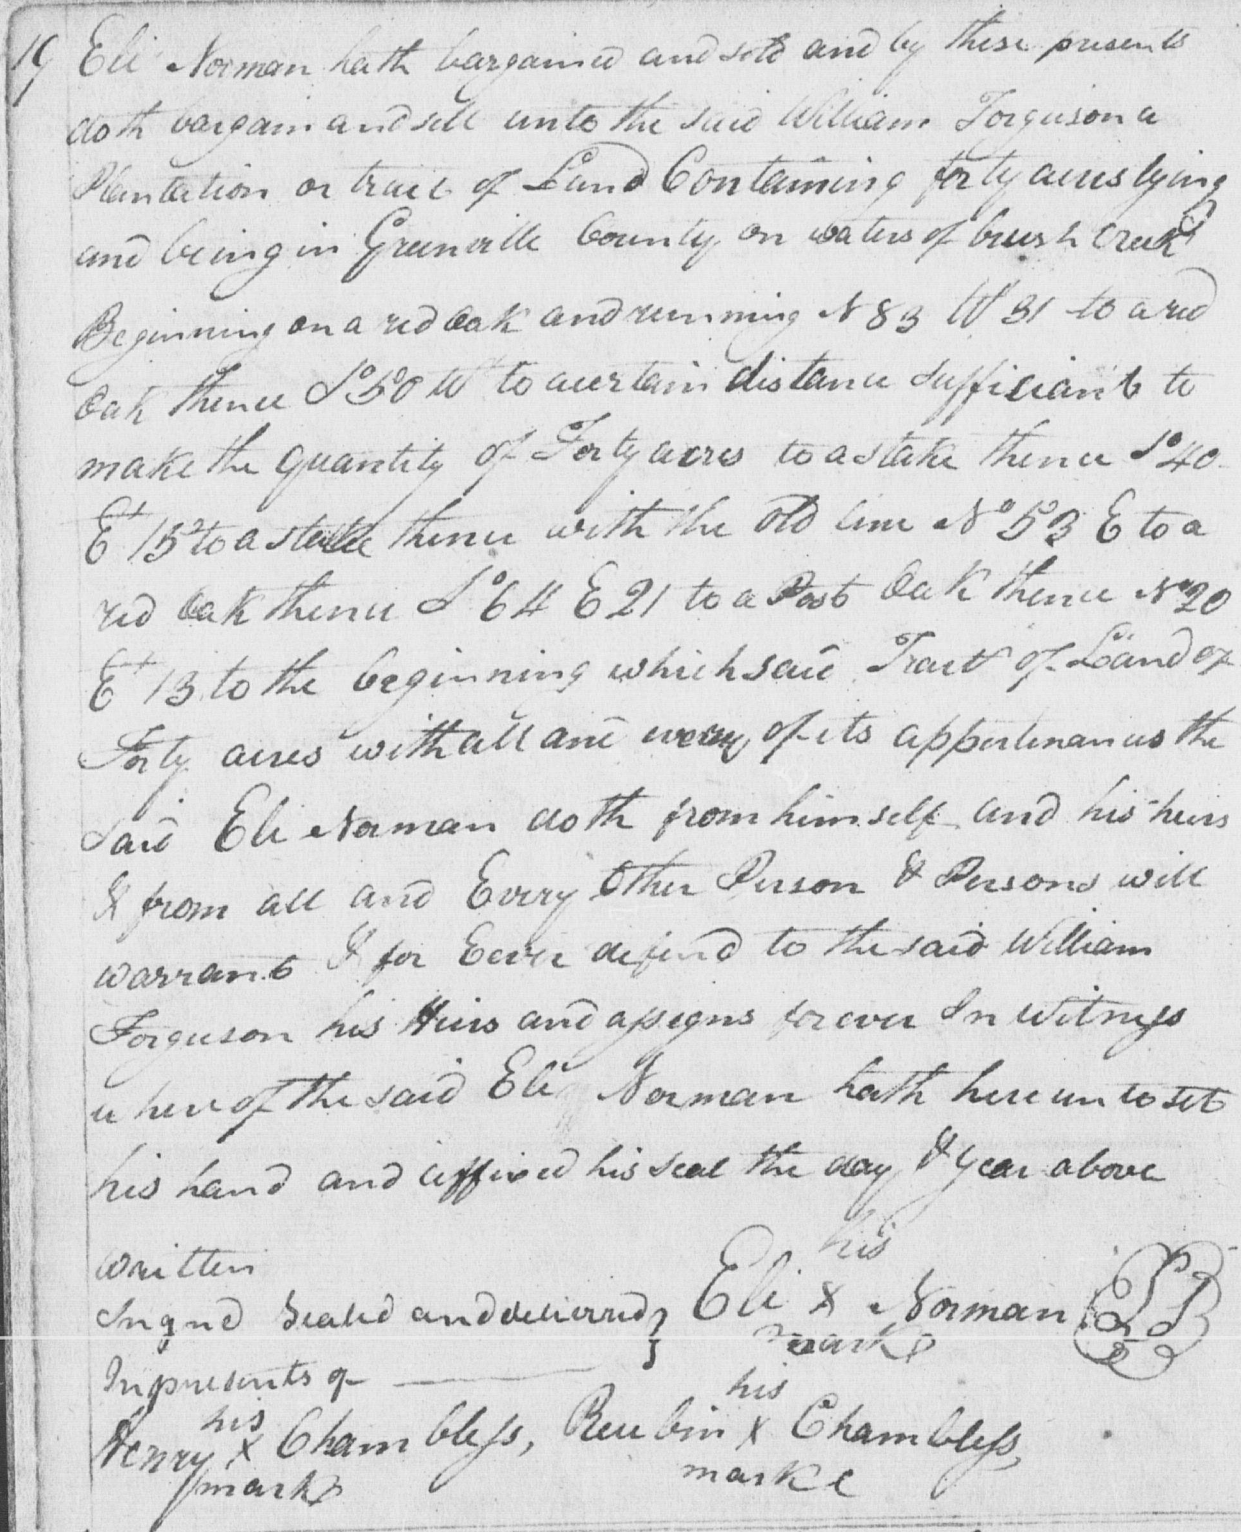 19
Eli Norman hath bargained and sold and by these presents
doth bargain and sell unto the said William Forguson a
Plantation or tract of Land Containing forty acres lying
and being in Greenville County on waters of brush Creek
Beginning on a red Oak and running N 83 W 31 to a red
Oak thence So 50 Wt to acertain distance sufficiant to
make the quantity of Forty acres to a stake thence So 40
Et 15 to a stake thence with the Old line No 53 E to a
red Oak thence So 64 E 21 to a Post Oak thence No 20
Et 13 to the beginning which said Tract of Land of
Forty acres with all and every of its appertenances the
said Eli Norman doth from himself and his heirs
& from all and Every Other Person & Persons will
warrant & for Ever defend to the said William
Forguson his Heirs and assigns forever In Witness
where of the said Eli Norman hath here unto set
his hand and affixed his seal the day & year above
written
his
Singnd Sealed and deliverred } Eli X Norman
mark
In presents of
his his
Henry X Chambless, Reubin X Chambless,
mark marke